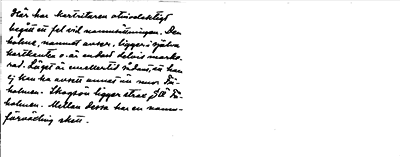 Här har kartritaren otvivelaktigt
begått ett fel vid namnsättningen. Den
holme, namnet avser, ligger i själva
kartkanten o. är endast delvis marke-
rad. Läget är emellertid sådant, att han
ej kan ha avsett annat än norr Fä-
holmen. Skogsön ligger strax Fä-
holmen. Mellan dessa har en namn-
förväxling skett.